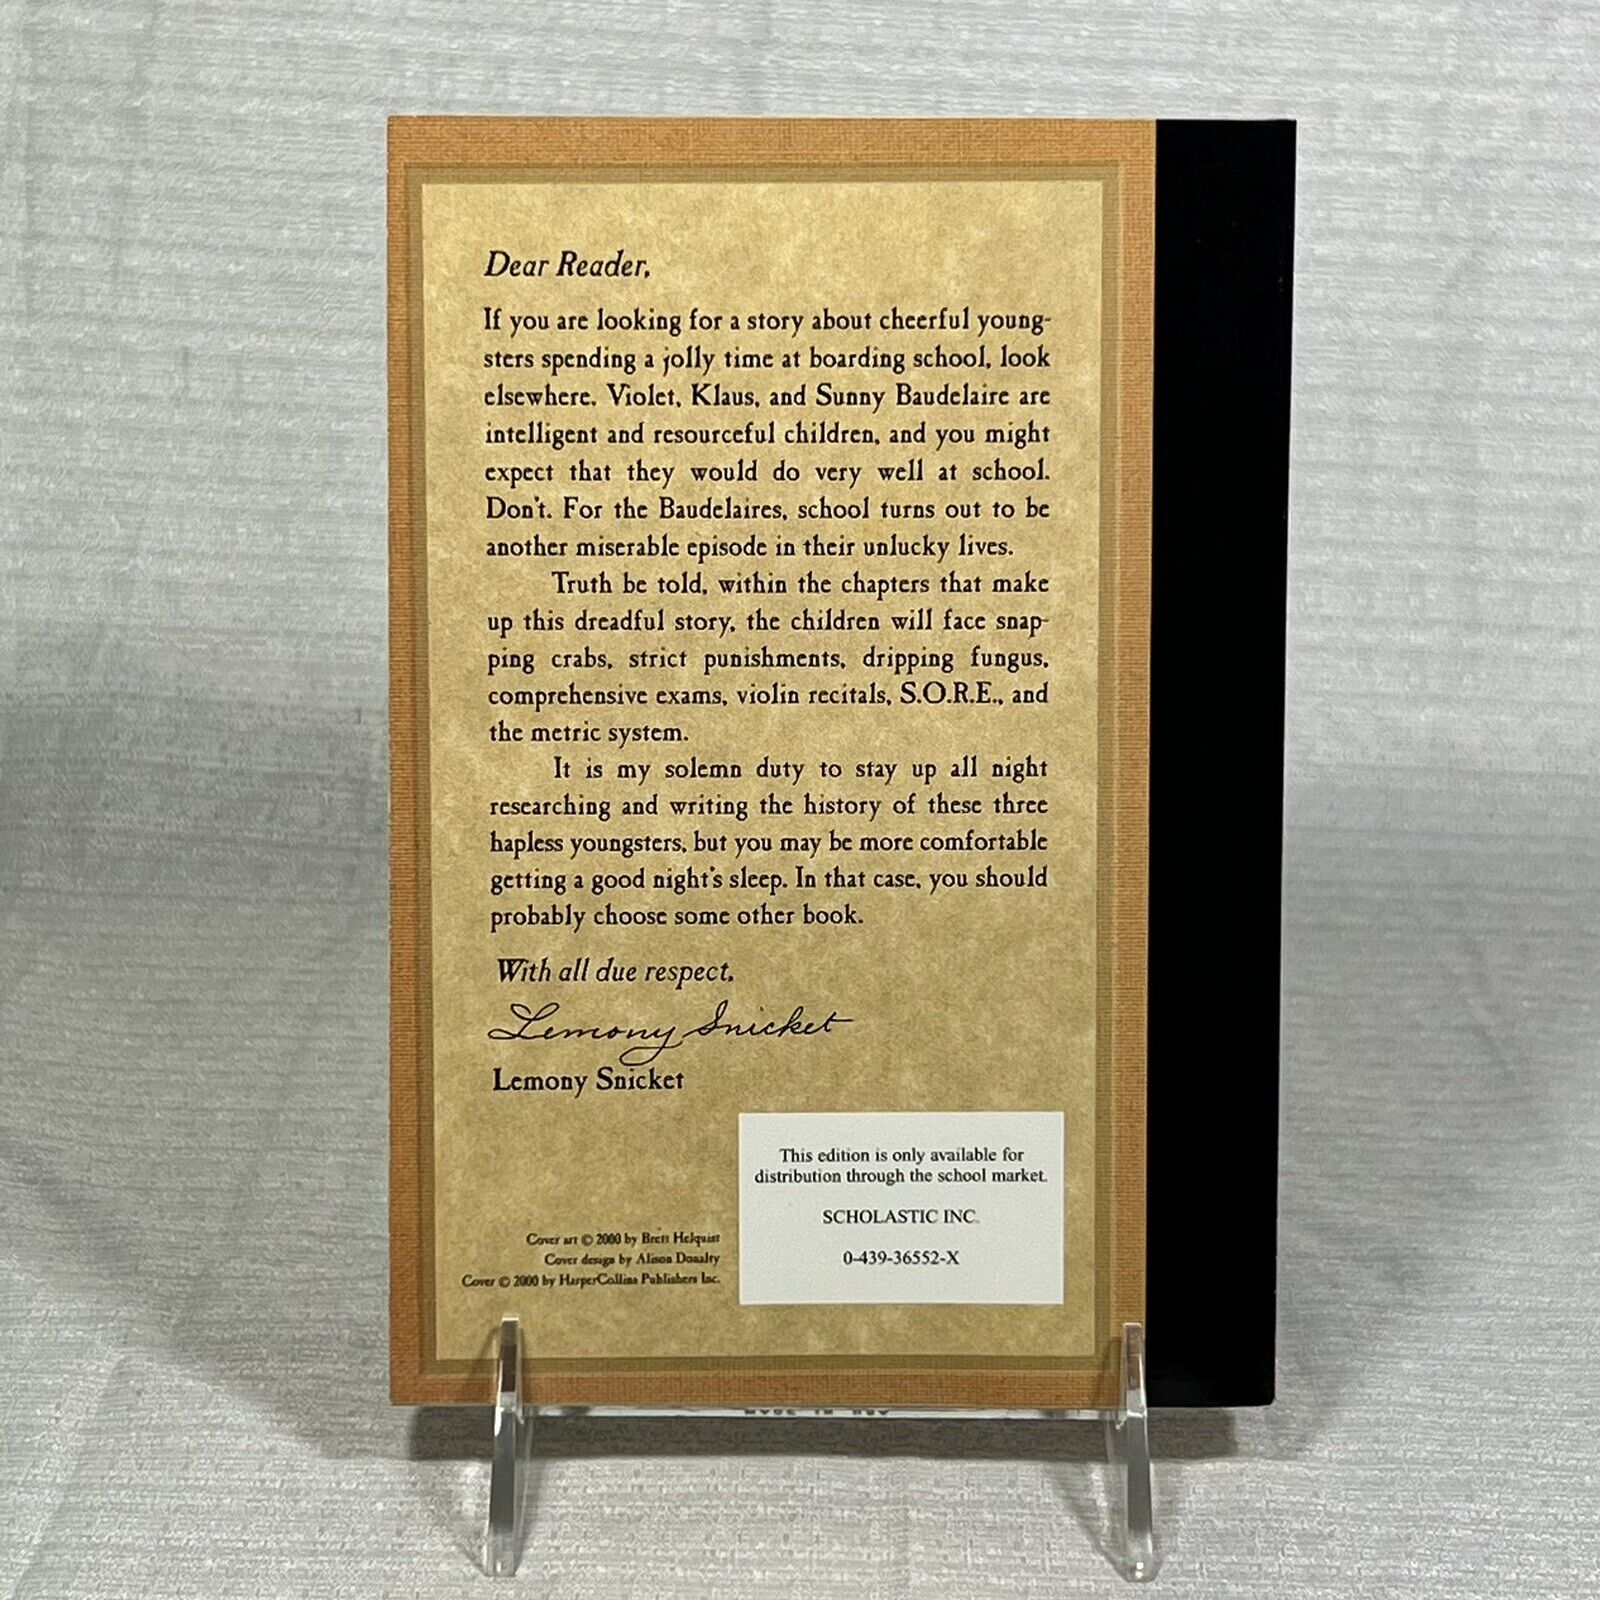 Dear Reader,
If you are looking for a story about cheerful young-
sters spending a jolly time at boarding school, look
elsewhere. Violet, Klaus, and Sunny Baudelaire are
intelligent and resourceful children, and you might
expect that they would do very well at school.
Don't. For the Baudelaires, school turns out to be
another miserable episode in their unlucky lives.
Truth be told, within the chapters that make
up this dreadful story, the children will face snap-
ping crabs, strict punishments, dripping fungus,
comprehensive exams, violin recitals, S.O.R.E., and
the metric system.
It is my solemn duty to stay up all night
researching and writing the history of these three
hapless youngsters, but you may be more comfortable
getting a good night's sleep. In that case, you should
probably choose some other book.
With all due respect,
Lemony Snicket
Lemony Snicket
This edition is only available for
distribution through the school market.
SCHOLASTIC INC.
0-439-36552-X
Cover art © 2000 by Brett Helquist
Cover design by Alison Donalty
Cover © 2000 by HarperCollins Publishers Inc.